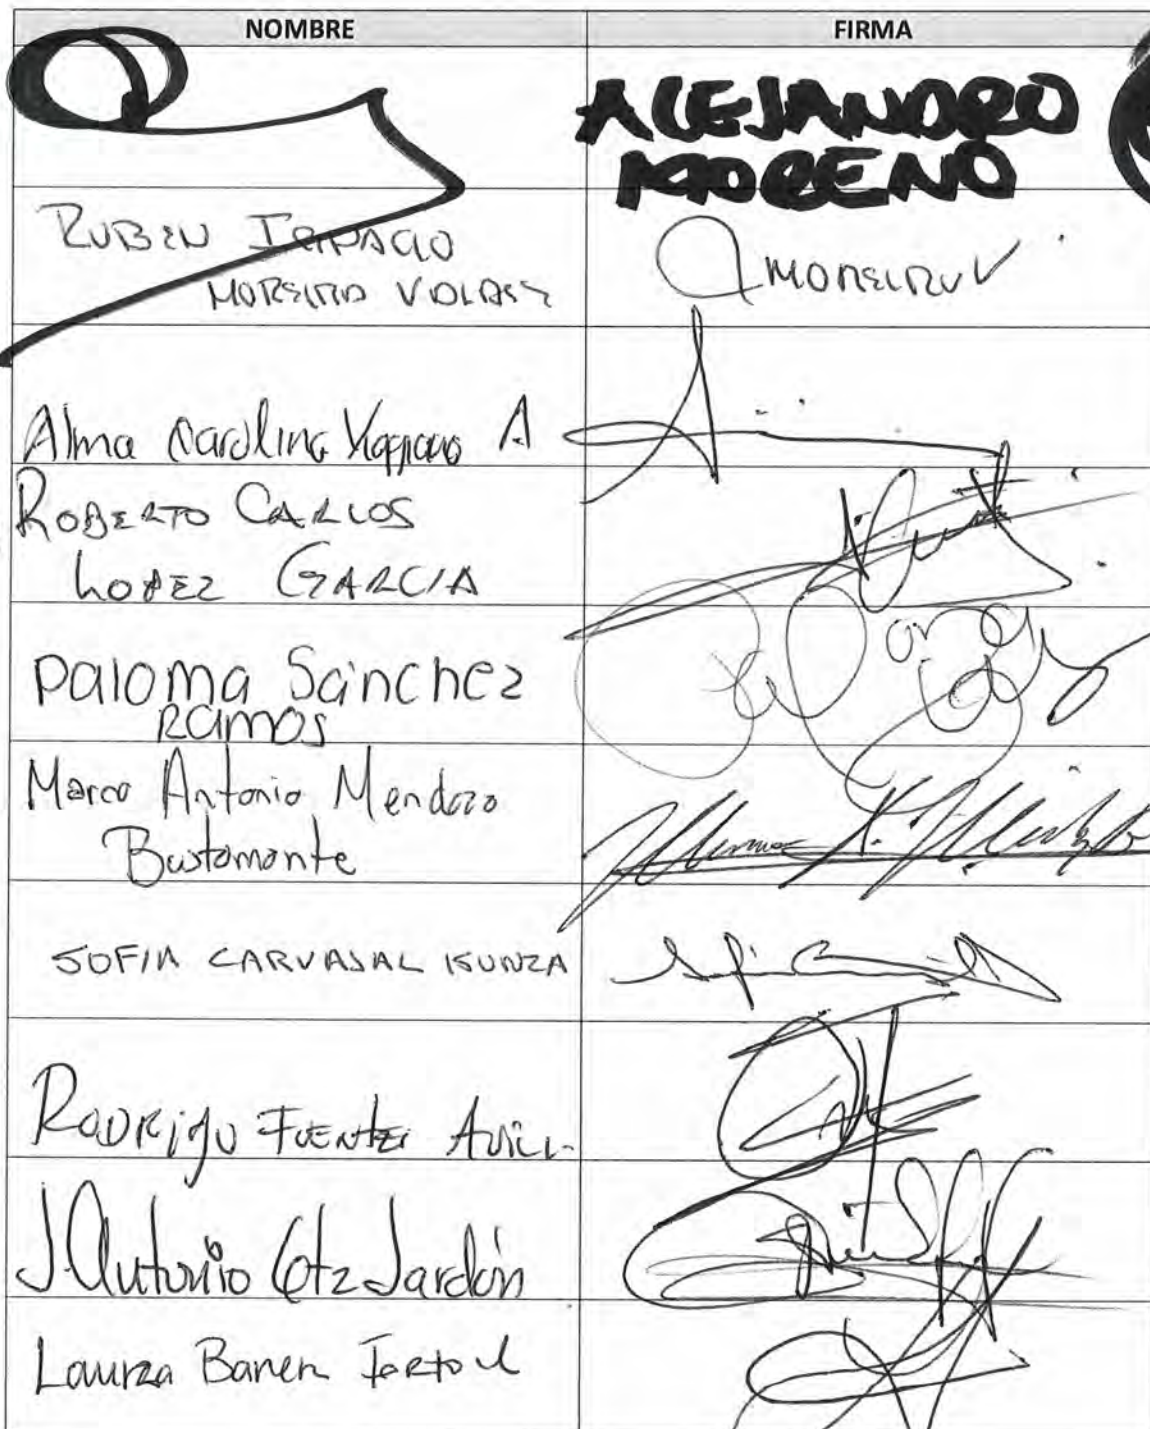 NOMBRE FIRMA
ALEJANDRO
MORENO
RUBEN IGNACIO
MOREIRA VALDEZ
MOREIRA V
Alma Carolina Viggiano A
ROBERTO CARLOS
LOPEZ GARCIA
Paloma Sánchez
RAMOS
Marco Antonio Mendoza
Bustamante
SOFIA CARVAJAL ISUNZA
RODRIGO FUENTES AVILA
J Antonio Gtz Jardón
Laura Barrera